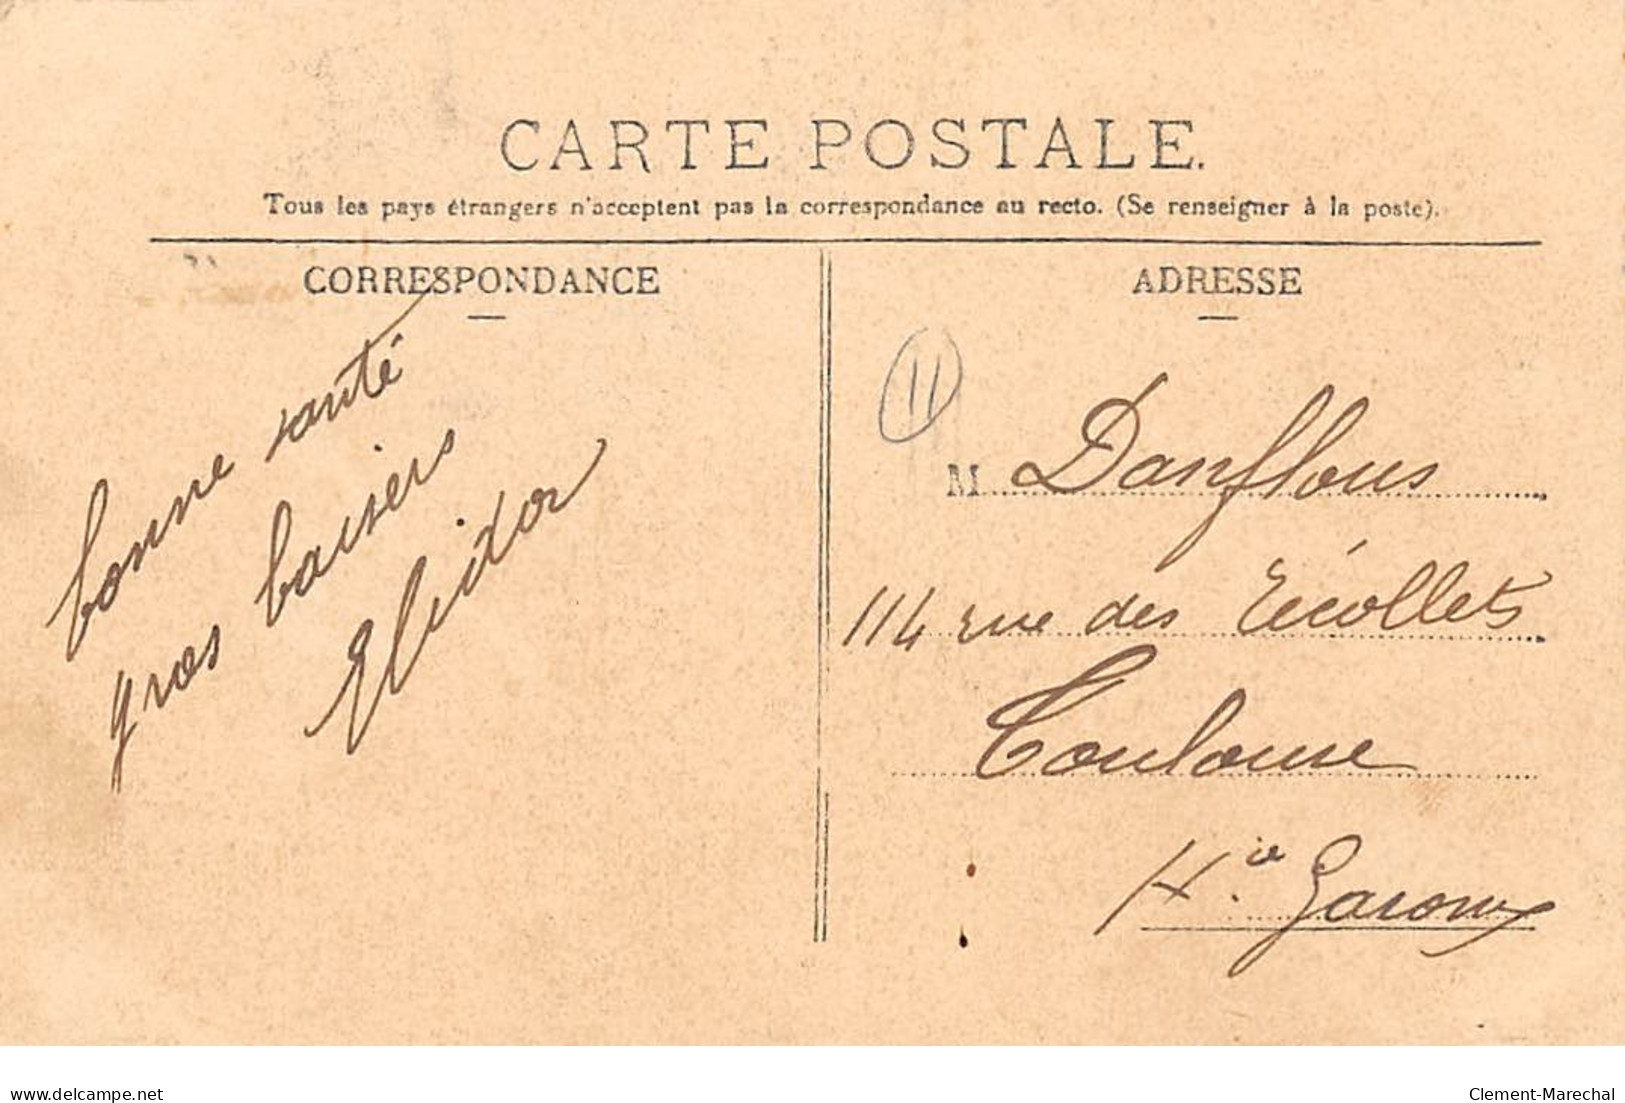 CARTE POSTALE.
Tous les pays étrangers n'acceptent pas la correspondance au recto. (Se renseigner à la poste).
CORRESPONDANCE
bonne santé
gros baisers
Elidor
ADRESSE
11
M Danflous
114 rue des Récollets
Toulouse
Hte. Garonne
delcampe.net
Clement-Marechal